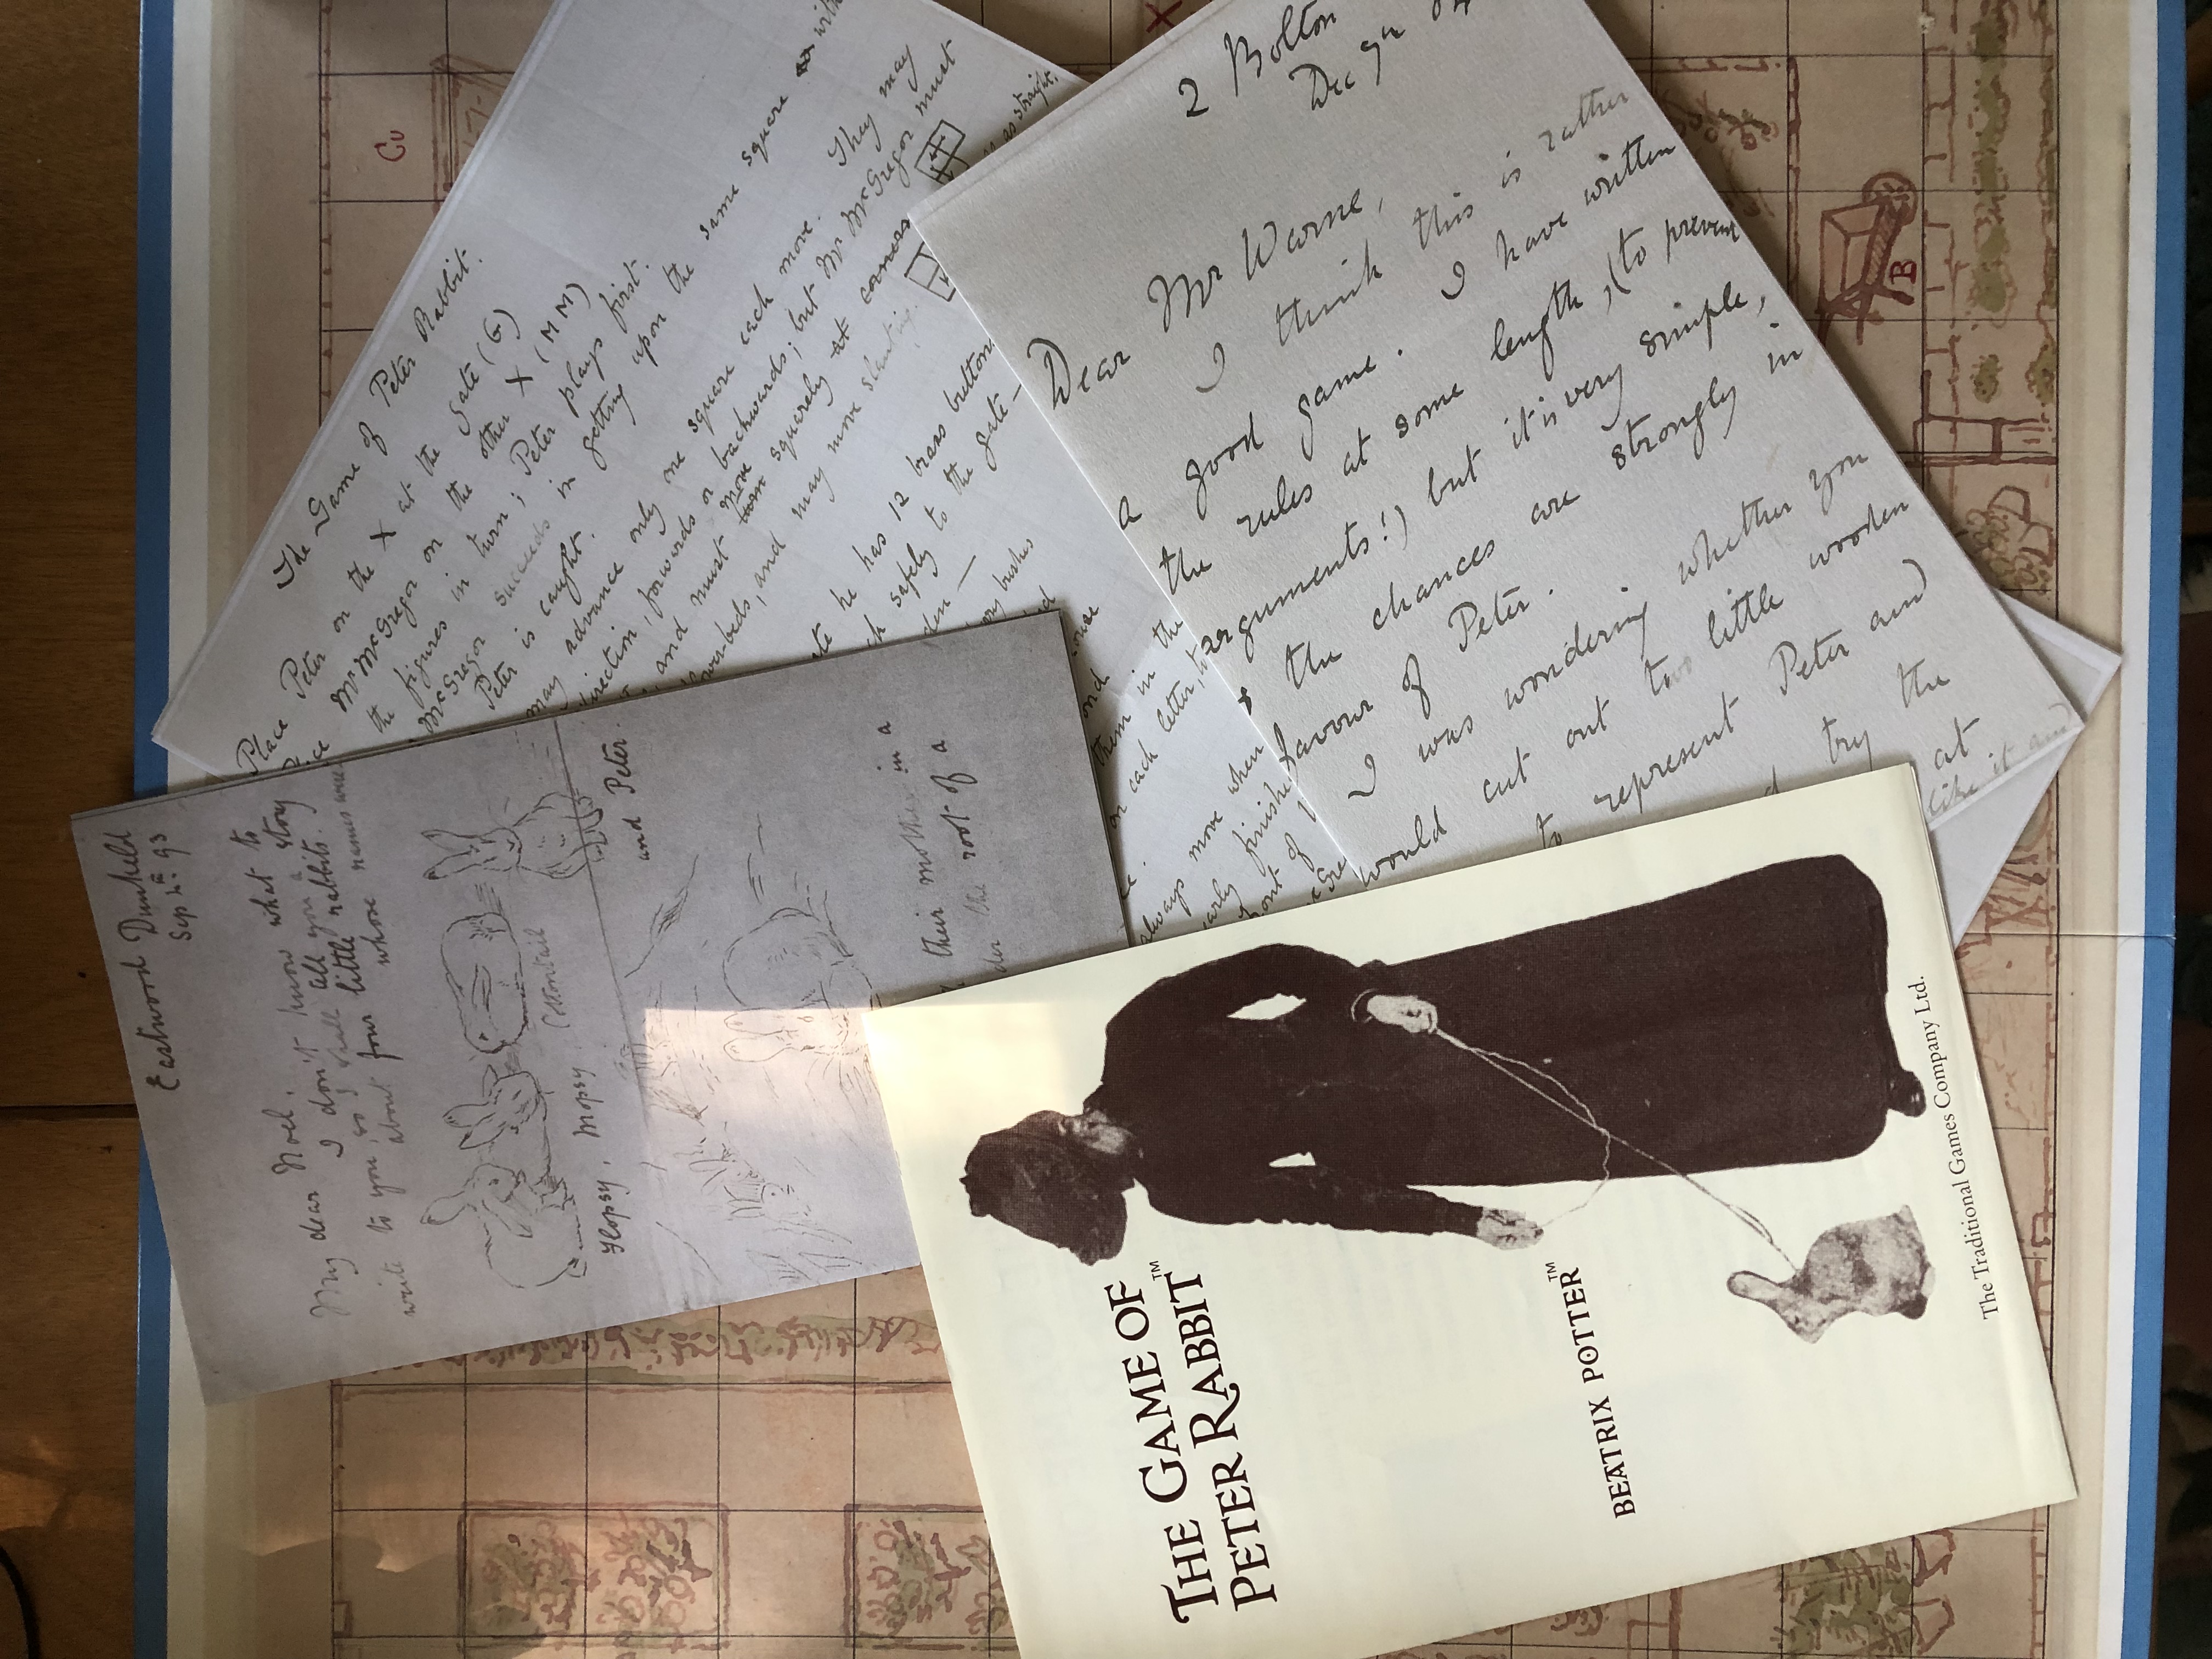 The Game of Peter Rabbit.
Place Peter on the X at the gate (G)
McGregor on the other X (MM)
the figures in turn; Peter plays first.
McGregor succeeds in getting upon the same square with
Peter is caught.
may advance only one square each move. They may
direction, forwards or backwards; but Mr McGregor must
and must move squarely at corners
beds, and may move slanting.
as straight.
he has 12 brass buttons
safely to the gate —
bushes
them in the
on each letter, to
always move when
finished
2 Bolton
Dec
Dear Mr Warne,
I think this is rather
a good game. I have written
the rules at some length, (to prevent
arguments!) but it is very simple,
& the chances are strongly in
favour of Peter.
I was wondering whether you
would cut out two little wooden
to represent Peter and
try the
at
like it and
Eastwood Dunkeld
Sep 4th 93
My dear Noel,
I don't know what to
write to you, so I shall tell you a story
about four little rabbits.
whose names were
Flopsy, Mopsy Cottontail
and Peter.
their mother in a
the root of a
THE GAME OF
PETER RABBIT™
BEATRIX POTTER™
The Traditional Games Company Ltd.
Cu
X
B